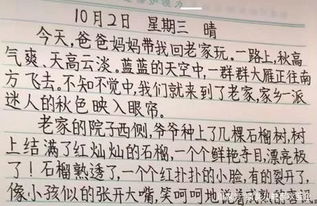 10月2日 星期三 晴
今天,爸爸妈妈带我回老家玩。一路上,秋高
气爽、天高云淡。蓝蓝的天空中,一群群大雁正往南
方飞去。不知不觉中,我们就来到了老家,家乡一派
迷人的秋色映入眼帘。
老家的院子西侧,爷爷种上了几棵石榴树,树
上结满了红灿灿的石榴,一个个鲜艳夺目,漂亮极
了!石榴熟透了,一个个红扑扑的小脸,有的裂开了,
像小孩似的张开大嘴,笑呵呵地